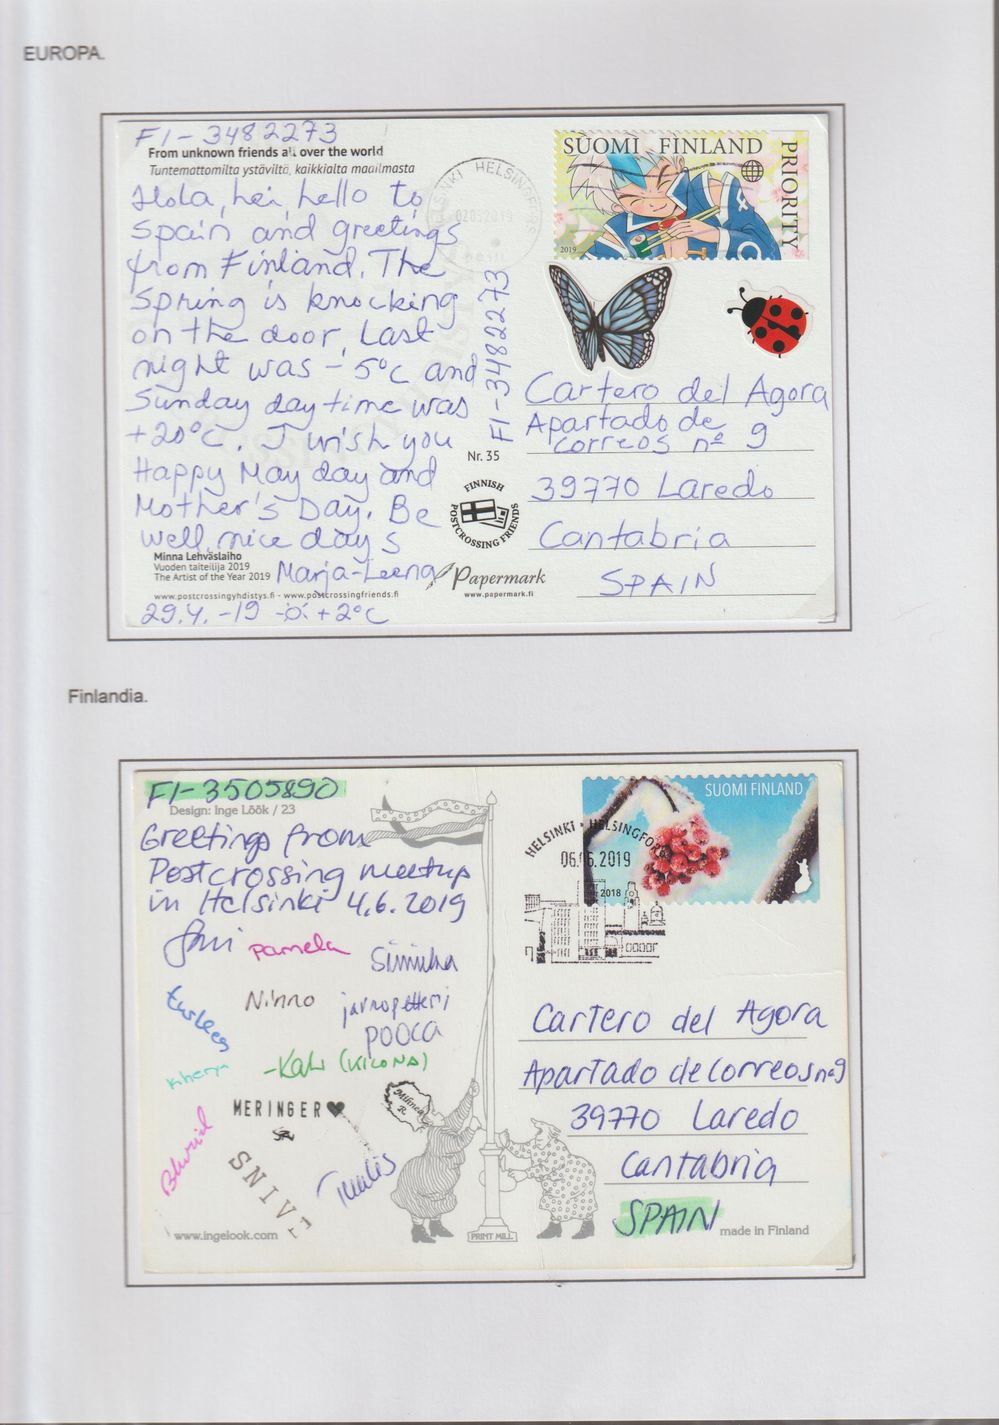 EUROPA.
FI-3482273
From unknown friends all over the world
Tuntemattomilta ystäviltä, kaikkialta maailmasta
Hola, hei, hello to
Spain and greetings
from Finland. The
Spring is knocking
on the door. Last
night was -5°C and
Sunday daytime was
+20°C. I wish you
Happy May day and
Mother's Day. Be
well, nice days
Minna Lehväslaiho
Vuoden taiteilija 2019
The Artist of the Year 2019
Marja-Leena
www.postcrossingyhdistys.fi - www.postcrossingfriends.fi
29.4.-19 +2°C
HELSINKI HELSINGFORS
02052019
FI-3482273
Nr. 35
FINNISH
POSTCROSSING FRIENDS
Papermark
www.papermark.fi
SUOMI FINLAND
PRIORITY
2019
Cartero del Agora
Apartado de
correos nº 9
39770 Laredo
Cantabria
SPAIN
Finlandia.
FI-3505890
Design: Inge Löök / 23
Greetings from
Postcrossing meetup
in Helsinki 4.6.2019
pamela
Ninno
jarnopetteri
pooca
-Kati (KILONA)
MERINGER♥
Minna
R.
www.ingelook.com
PRINT MILL
SUOMI FINLAND
HELSINKI - HELSINGFORS
06.06.2019
2018
Cartero del Agora
Apartado de correos nº9
39770 Laredo
Cantabria
SPAIN
made in Finland